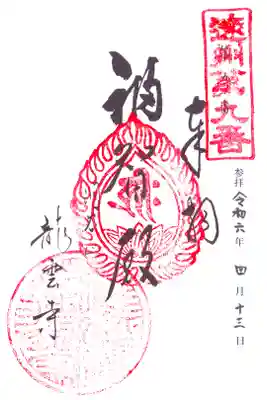 遠州第九番
参拝 令和六年 四月十三日
奉拝
福智殿
龍雲寺